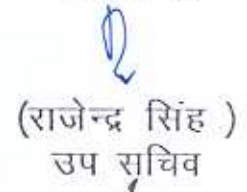 (राजेन्द्र सिंह )
उप सचिव